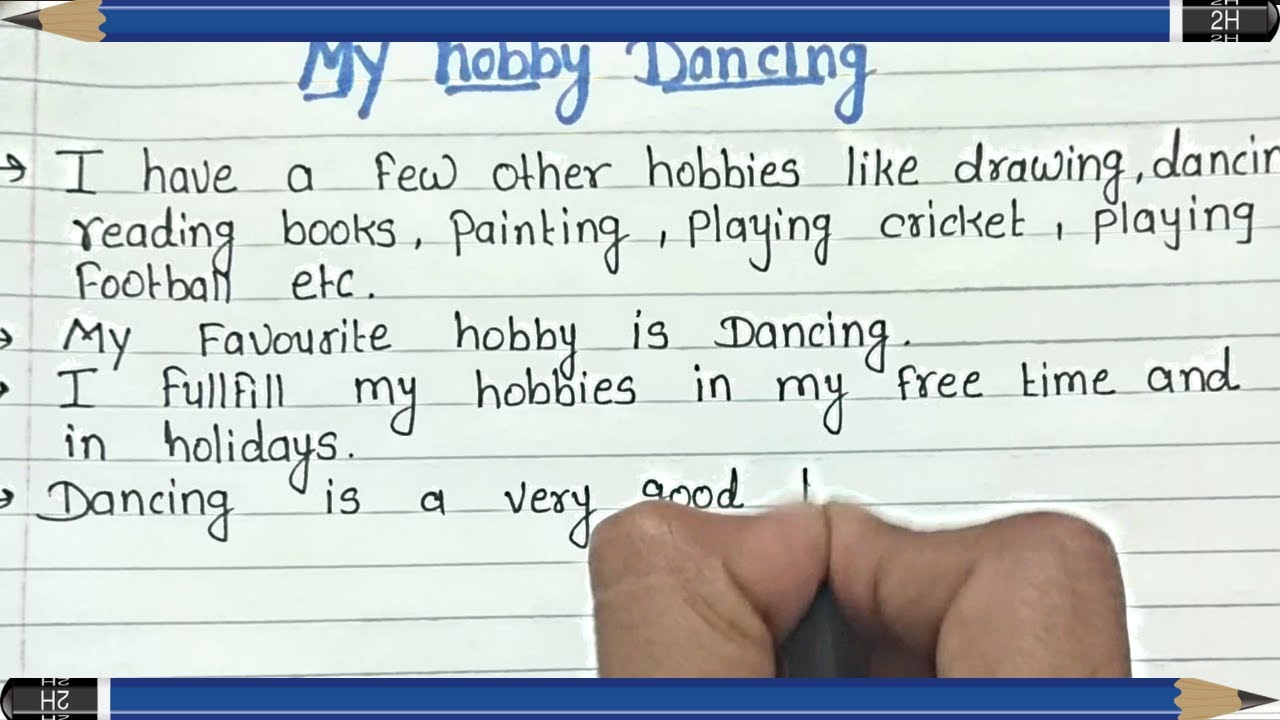 2H
My hobby Dancing
→ I have a few other hobbies like drawing, dancin
reading books, painting, playing cricket, playing
Football etc.
→ My Favourite hobby is Dancing.
→ I fullfill my hobbies in my free time and
in holidays.
→ Dancing is a very good
2H